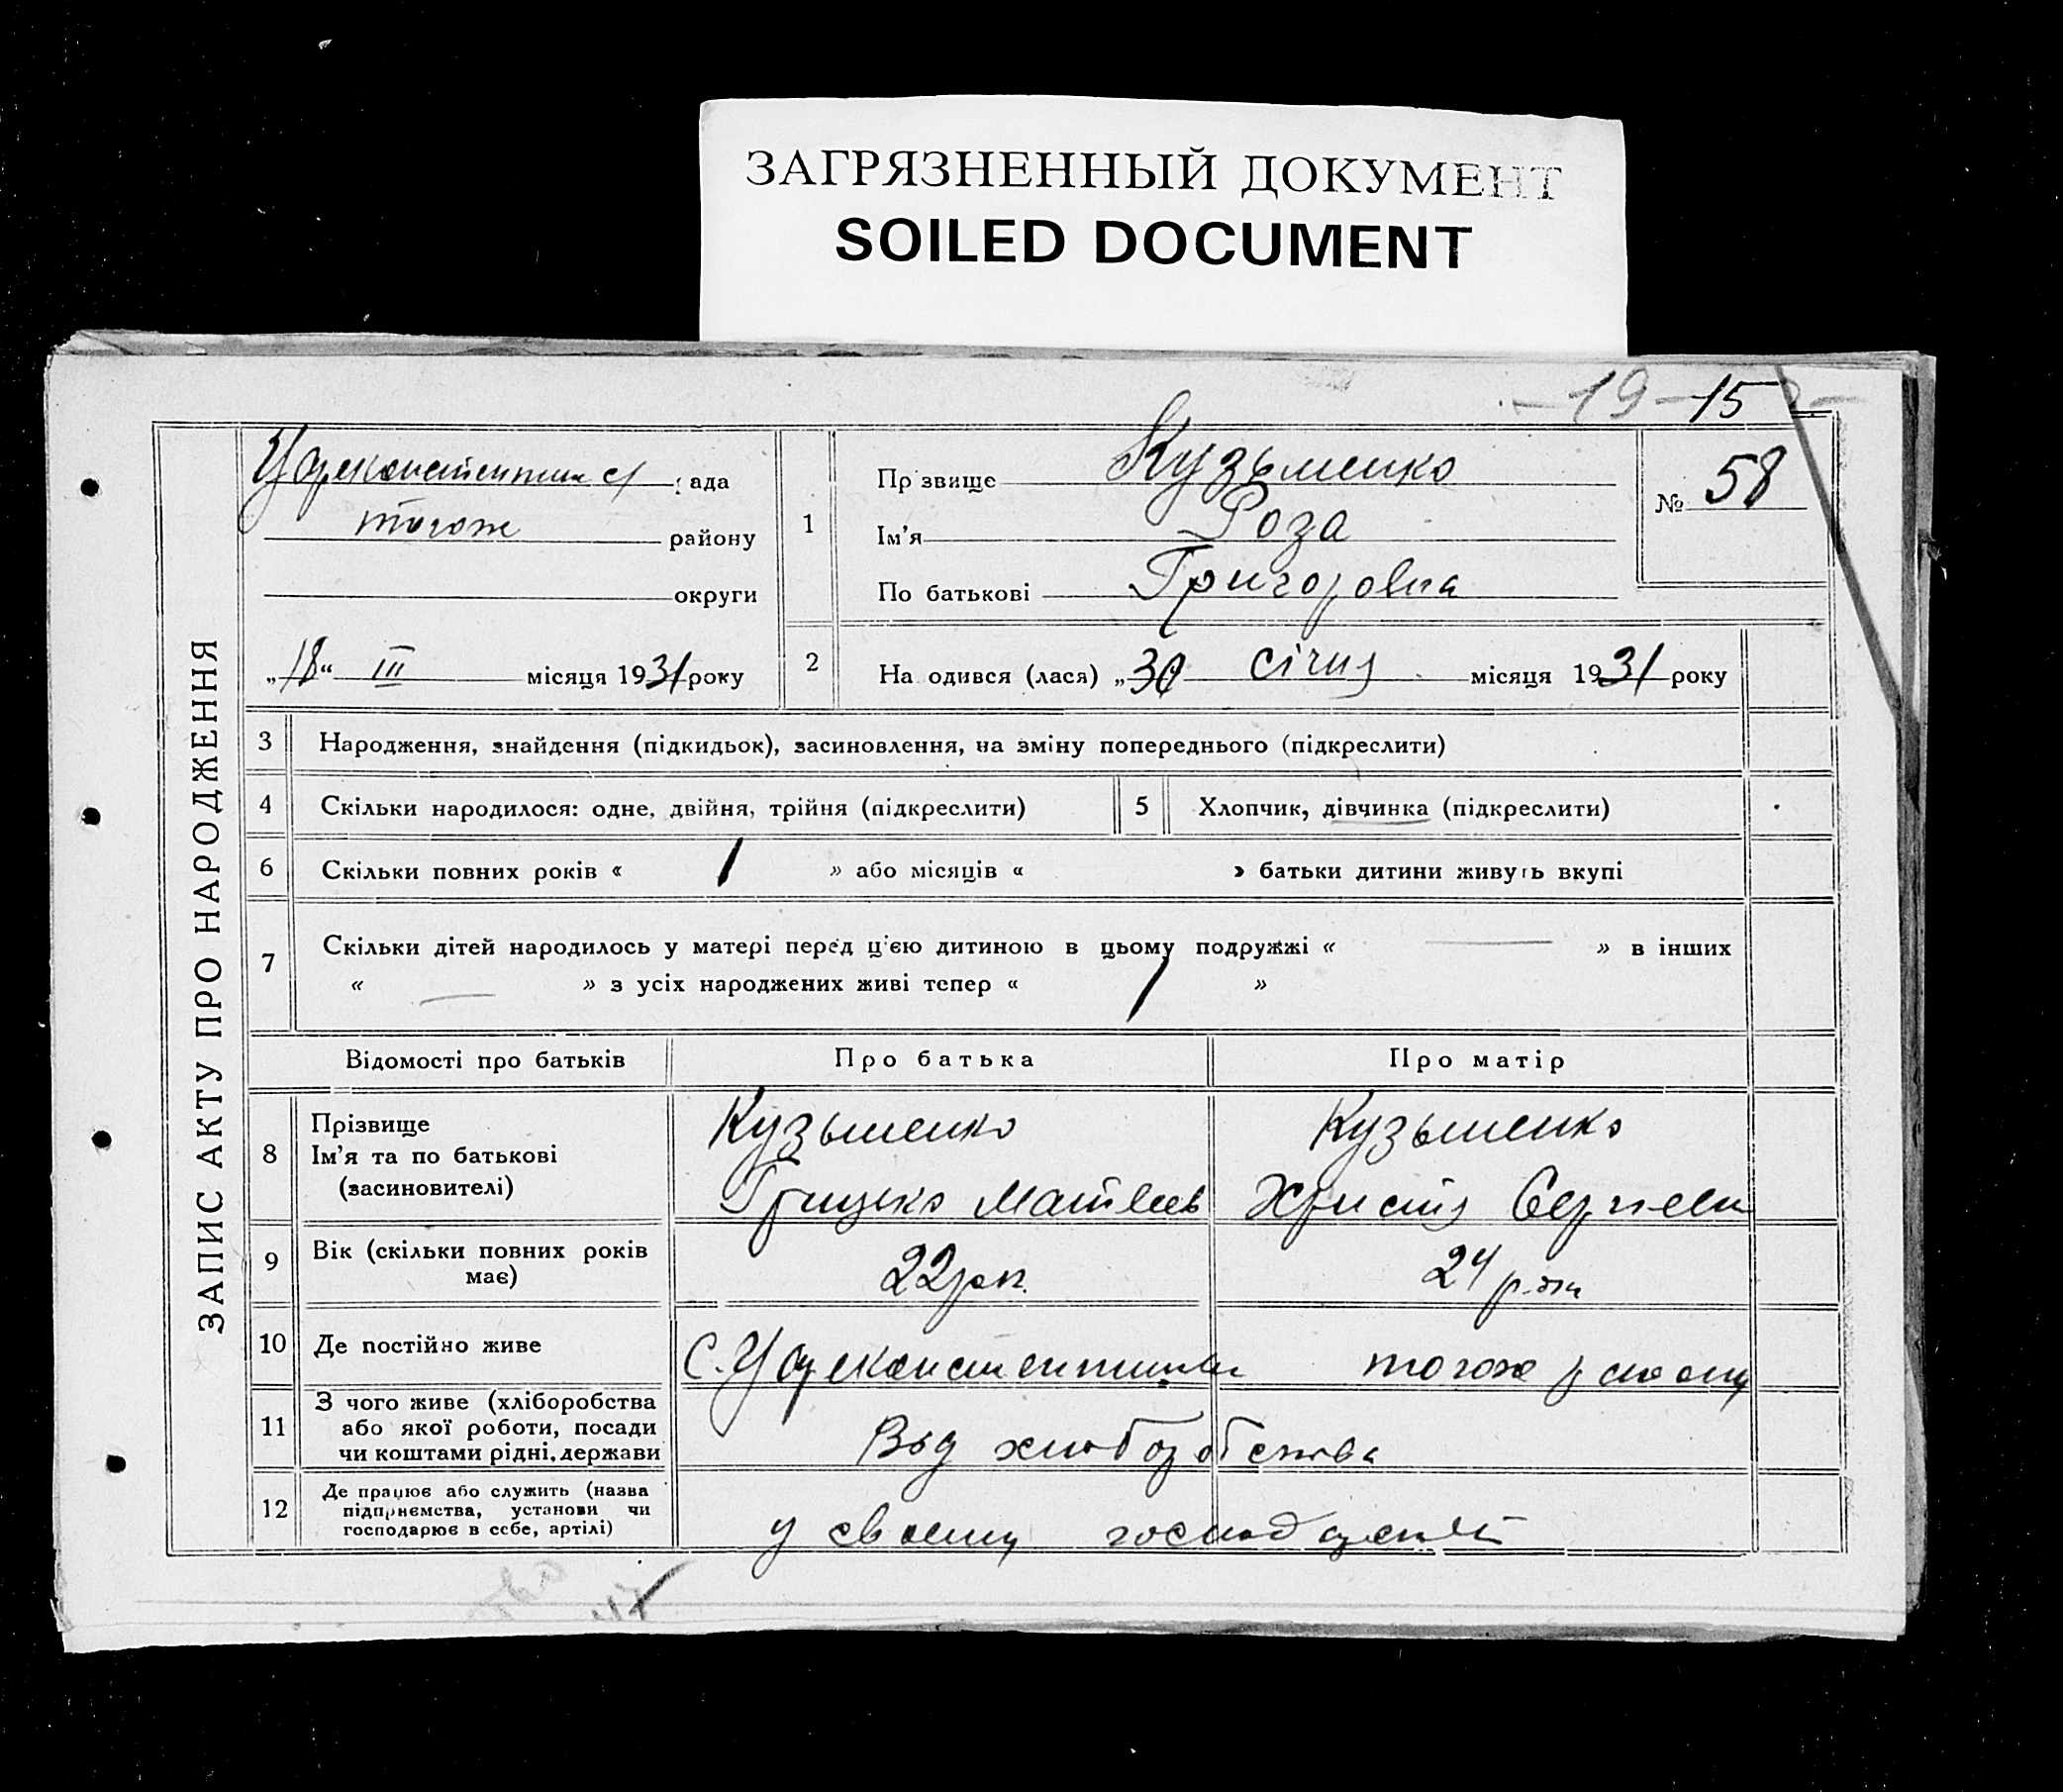 ЗАГРЯЗНЕННЫЙ ДОКУМЕНТ
SOILED DOCUMENT
-19-15
ЗАПИС АКТУ ПРО НАРОДЖЕННЯ
рада
тогож району
округи
„18“ III місяця 1931 року
1
Прізвище Кузьменко
Ім'я Роза
По батькові Григоровна
№ 58
2 На одився (лася) „30 січня місяця 1931 року
3 Народження, знайдення (підкидьок), засиновлення, на зміну попереднього (підкреслити)
4 Скільки народилося: одне, двійня, трійня (підкреслити)
5 Хлопчик, дівчинка (підкреслити)
6 Скільки повних років « 1 » або місяців « » батьки дитини живуть вкупі
7 Скільки дітей народилось у матері перед ц'єю дитиною в цьому подружжі « — » в інших
« — » з усіх народжених живі тепер « 1 »
Відомості про батьків Про батька Про матір
8 Прізвище
Ім'я та по батькові
(засиновителі)
Кузьменко
Грицько Матвеев
Кузьменко
Христя Сергеев
9 Вік (скільки повних років
має)
22 рок.
24 р.
10 Де постійно живе
тогож району
11 З чого живе (хліборобства
або якої роботи, посади
чи коштами рідні, держави
Від хліборобства
12 Де працює або служить (назва
підприємства, установи чи
господарює в себе, артілі)
у своему